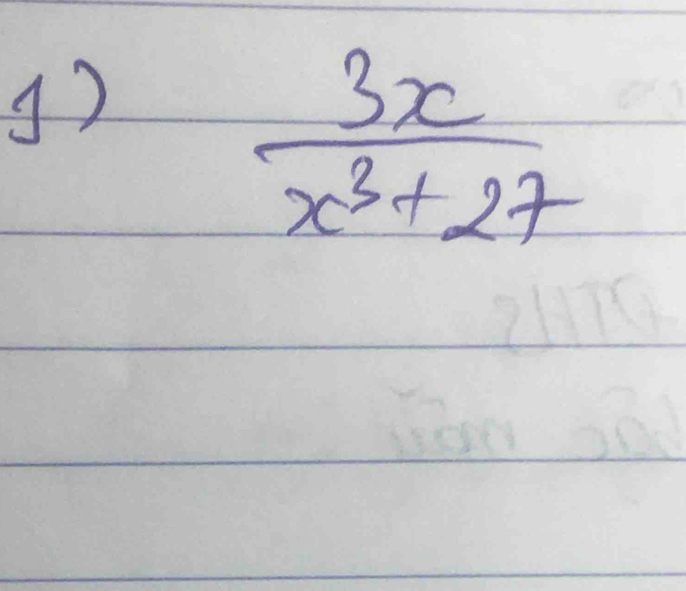 1) 3x
x³+27